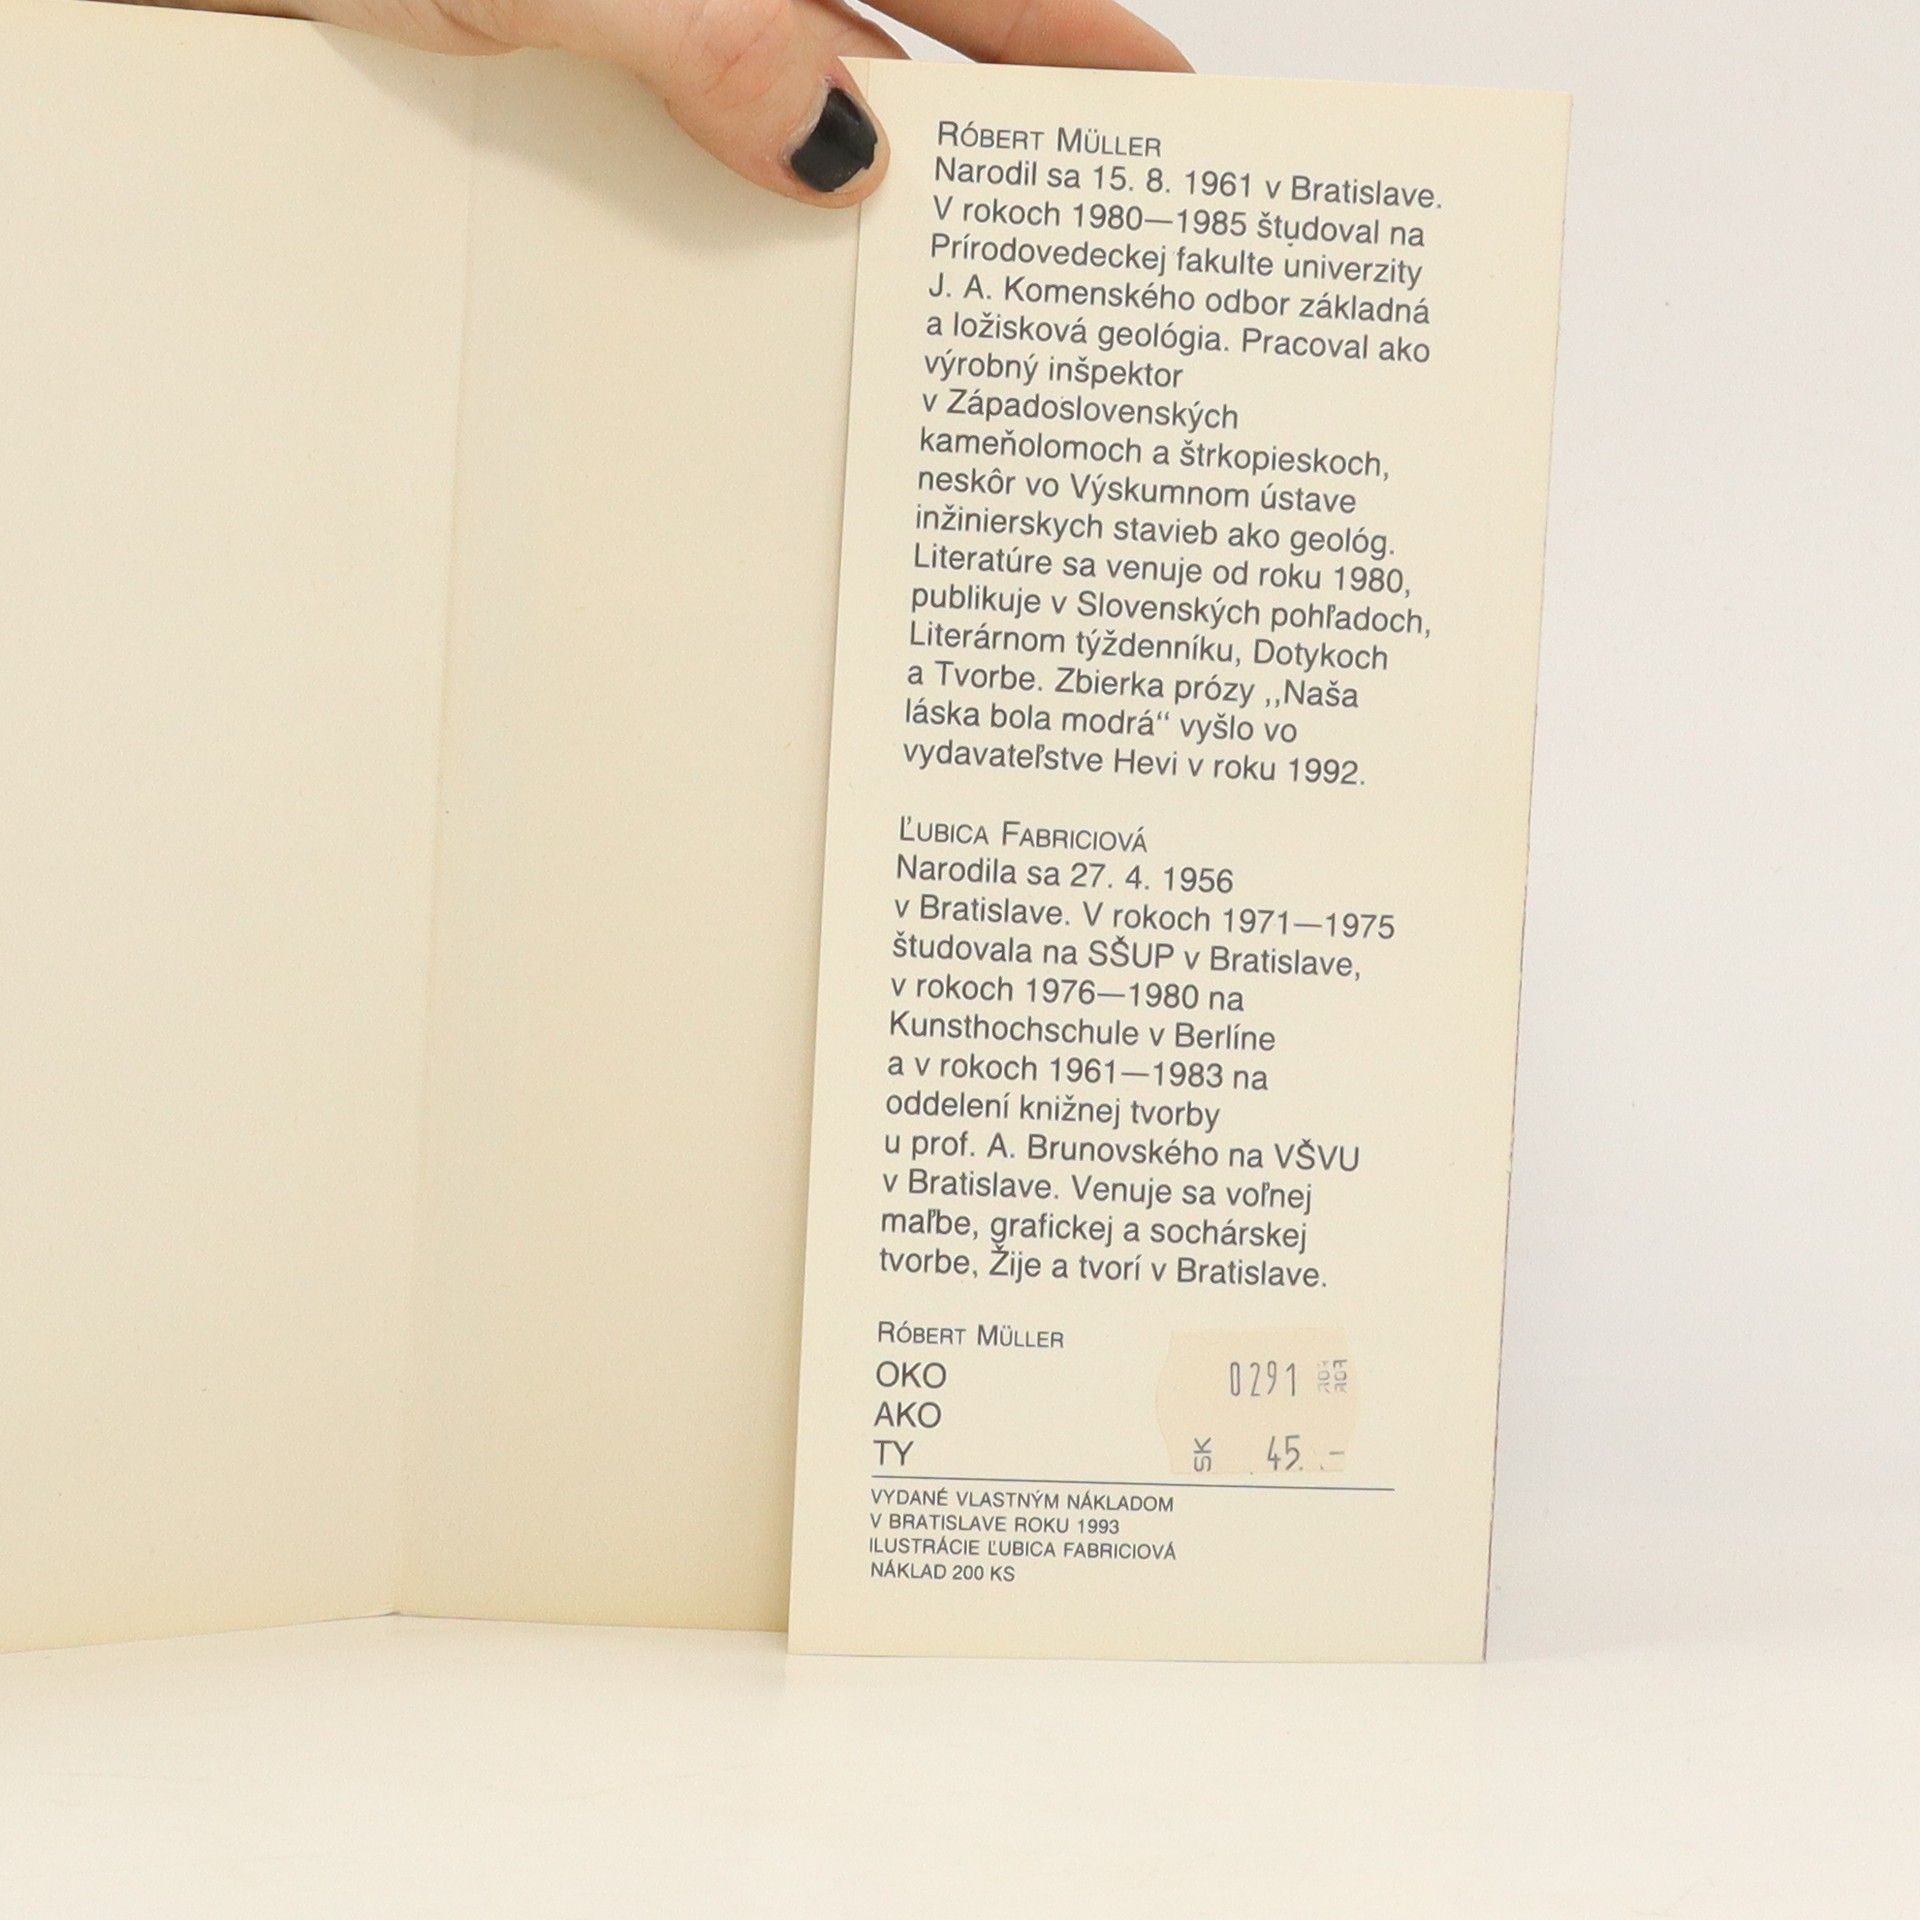 RÓBERT MÜLLER
Narodil sa 15. 8. 1961 v Bratislave.
V rokoch 1980—1985 študoval na
Prírodovedeckej fakulte univerzity
J. A. Komenského odbor základná
a ložisková geológia. Pracoval ako
výrobný inšpektor
v Západoslovenských
kameňolomoch a štrkopieskoch,
neskôr vo Výskumnom ústave
inžinierskych stavieb ako geológ.
Literatúre sa venuje od roku 1980,
publikuje v Slovenských pohľadoch,
Literárnom týždenníku, Dotykoch
a Tvorbe. Zbierka prózy ,,Naša
láska bola modrá“ vyšlo vo
vydavateľstve Hevi v roku 1992.
ĽUBICA FABRICIOVÁ
Narodila sa 27. 4. 1956
v Bratislave. V rokoch 1971—1975
študovala na SŠUP v Bratislave,
v rokoch 1976—1980 na
Kunsthochschule v Berlíne
a v rokoch 1961—1983 na
oddelení knižnej tvorby
u prof. A. Brunovského na VŠVU
v Bratislave. Venuje sa voľnej
maľbe, grafickej a sochárskej
tvorbe, Žije a tvorí v Bratislave.
RÓBERT MÜLLER
OKO
AKO
TY
0291
SK 45.-
VYDANÉ VLASTNÝM NÁKLADOM
V BRATISLAVE ROKU 1993
ILUSTRÁCIE ĽUBICA FABRICIOVÁ
NÁKLAD 200 KS